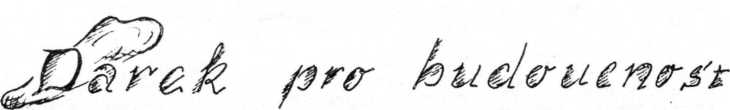 Dárek pro budoucnost